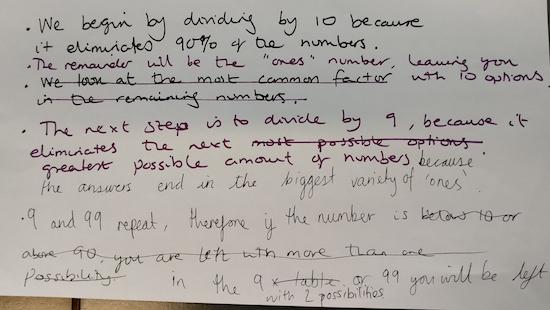 . We begin by dividing by 10 because
it eliminates 90% of the numbers.
. The remainder will be the "ones" number, leaving you
. We look at the most common factor with 10 options.
in the remaining numbers.
. The next step is to divide by 9, because it
eliminates the next most possible options
greatest possible amount of numbers because
the answers end in the biggest variety of 'ones'.
. 9 and 99 repeat, therefore if the number is below 10 or
above 90, you are left with more than one
possibility. in the 9 x table or 99 you will be left
with 2 possibilities